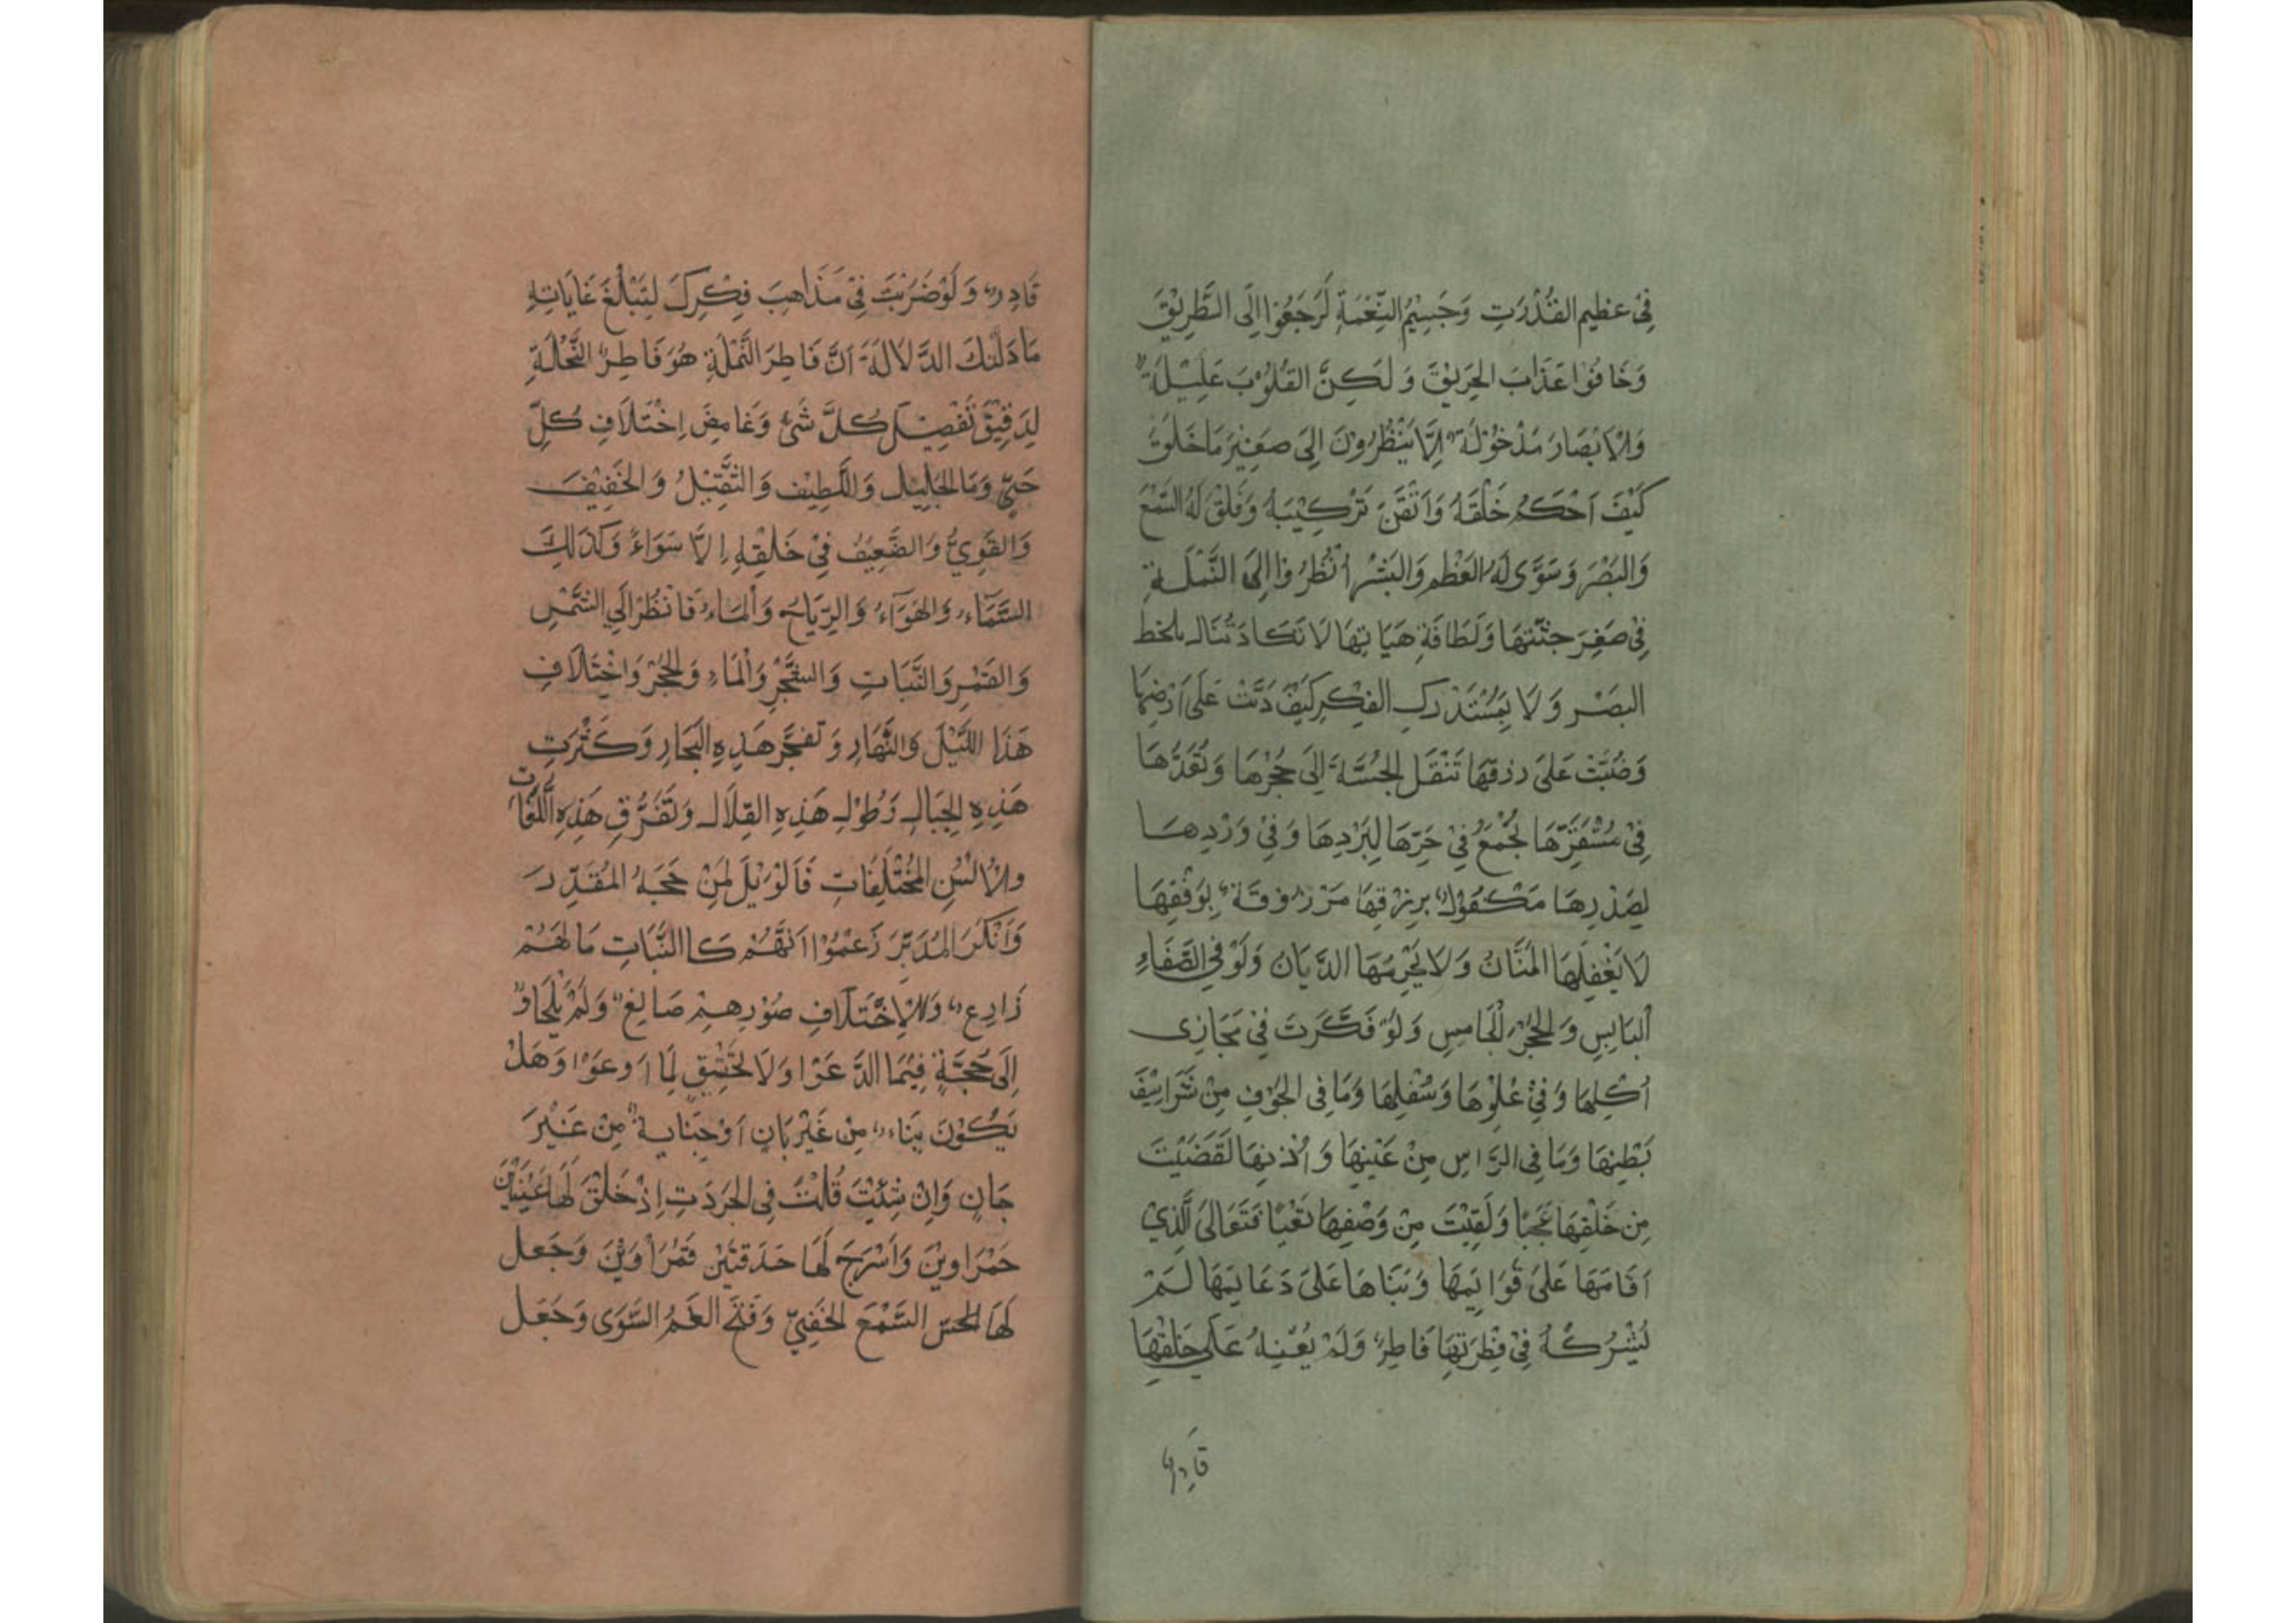 فِي عَظِيمِ القُدْرَتِ وَجَسِيْمِ النِّعْمَةِ لَرَجَعُوْا اِلَى الطَّرِيْقَ
وَخَافُوْا عَذَابَ الحَرِيْقَ وَلَكِنَّ القُلُوْبَ عَلِيْلَةٌ
وَالْاَبْصَارَ مَدْخُوْلَةٌ اِلَّا يَنْظُرُونَ اِلَى صَغِيْرَ مَا خَلَقَ
كَيْفَ اَحْكَمُ خَلْقَهُ وَاَتْقَنَ تَرْكِيْبَهُ وَفَلَقَ لَهُ السَّمْعَ
وَالبَصْرَ وَسَوَّى لَهُ العَظْمِ وَالبَشْرِ اُنْظُرُوْا اِلَى النَّمْلَةِ
فِي صَغِرَ جثَّتِهَا وَلَطَافَةِ هَيَاتِهَا لَا تَكَادَ تُنَالُ بلحظ
البَصَْرِ وَلَا بِمُسْتَدْرَكِ الفِكْرِ كَيْفَ دَبَّتْ عَلَى اَرْضِهَا
وَصُبَّتْ عَلَى رزقهَا تَنْقَل الحَبَّةَ اِلَى حُجْرِهَا وَتُعِدُّهَا
فِي مُسْتَقَرِّهَا تَجْمَعُ فِي حَرِّهَا لِبَرْدِهَا وَفِي وَرْدِهَا
لِصَدْرِهَا مَكْفُوْلٌ بِرِزْقِهَا مَرْزُوقَةٌ بِوَفْقِهَا
لَا يَغْفِلُهَا المَنَّانُ وَلَا يَحْرِمُهَا الدَّيَانُ وَلَوْ فِي الصَّفَاءِ
اليَابِسِ وَالحَجَرِ الْجَامِسِ وَلَوْ فَكَّرَتَ فِي مَجَازِى
اُكْلِهَا وَفِي عُلُوْهَا وَسُفْلِهَا وَمَا فِى الجَوْفِ مِنْ شَرَاسِيْفَ
بَطْنِهَا وَمَا فِى الرَّاسِ مِنْ عَيْنِهَا وَاُذُنِهَا لَقَضَيْتَ
مِنْ خَلْقِهَا عَجَبًا وَلَقِيْتَ مِنْ وَصْفِهَا تَعْبًا فَتَعَالَى الَّذِيْ
اَقَامَهَا عَلَى قَوَائِمِهَا وَبَنَاهَا عَلَى دَعَايِمَهَا لَمْ
يُشْرِكْهُ فِي فِطْرَتِهَا فَاطِرٌ وَلَمْ يُعْنِهُ عَلَى خَلْقِهَا
قَادِرٌ
قَادِرٌ وَلَوْ ضَرَبْتَ فِي مَذَاهِبَ فِكْرِكَ لِتَبْلُغَ غَايَاتِهِ
مَا دَلَّتْكَ الدَّلَالَةَ اَنَّ فَاطِرَ النَّمْلَةِ هُوَ فَاطِرُ النَّخْلَةِ
لِدَقِيْقَ تَفْصِيْلِ كُلَّ شَيْءٍ وَغَامِضَ اِخْتِلَافِ كُلِّ
حَيٍّ وَمَا الجَلِيْلِ وَاللَّطِيْفِ وَالثَّقِيْلُ وَالخَفِيْفَ
وَالقَوِيُّ وَالضَّعِيْفُ فِي خَلْقِهِ اِلَّا سَوَاءً وَكَذَالِكَ
السَّمَآءُ وَالهَوَآءُ وَالرِّيَاحُ وَالْمَاءُ فَانْظُرْ اِلَي الشَّمْسِ
وَالقَمْرِ وَالنَّبَاتِ وَالشَّجَّرِ وَالْمَاءِ وَالحَجْرِ وَاخْتِلَافِ
هَذَا اللَّيْلَ وَالنَّهَارِ وَتَفَجَّرَ هَذِهِ البِحَارِ وَكَثْرَتِ
هَذِهِ الجِبَالِ وَطُوْلِ هَذِهِ القِلَالِ وَتَفَرُّقِ هَذِهِ اللُّغَات
وَالْاَلْسُنِ المُخْتَلِفَاتِ فَالْوَيْلَ لِمَنْ جَحَدَ المُقَدِّرَ
وَاَنْكَرَ المُدَبِّرَ زَعَمُوْا اَنَّهُمْ كَاالنَّبَاتِ مَالَهُمْ
زَارِعٌ وَلَا لِاِخْتَلَافِ صُوَرِهِمْ صَانِعٌ وَلَمْ يَلْجَاوْ
اِلَى حُجَّةٍ فِيْمَا ادَّعَوْا وَلَا تَحْقِيْقٍ لِمَا اَوعَوْا وَهَلْ
يَكُوْنَ بِنَاءٌ مِنْ غَيْرِ بَانٍ اَوْ جِنَايَةٌ مِنْ غَيْرَ
جَانٍ وَاِنْ شِئْتَ قُلْتَ فِى الجَرَدَتِ اِذْ خَلَقَ لَهَا عَيْنَيْنَ
حَمْرَاوِيْنَ وَاَسْرَجَ لَهَا حَدَقَتَيْنِ قَمْرَاوَيْنَ وَجَعل
لَهَا الحسّ السَّمْعَ الخَفِيّ وَفَتَحَ الفَمُ السَّوِى وَجَعَل